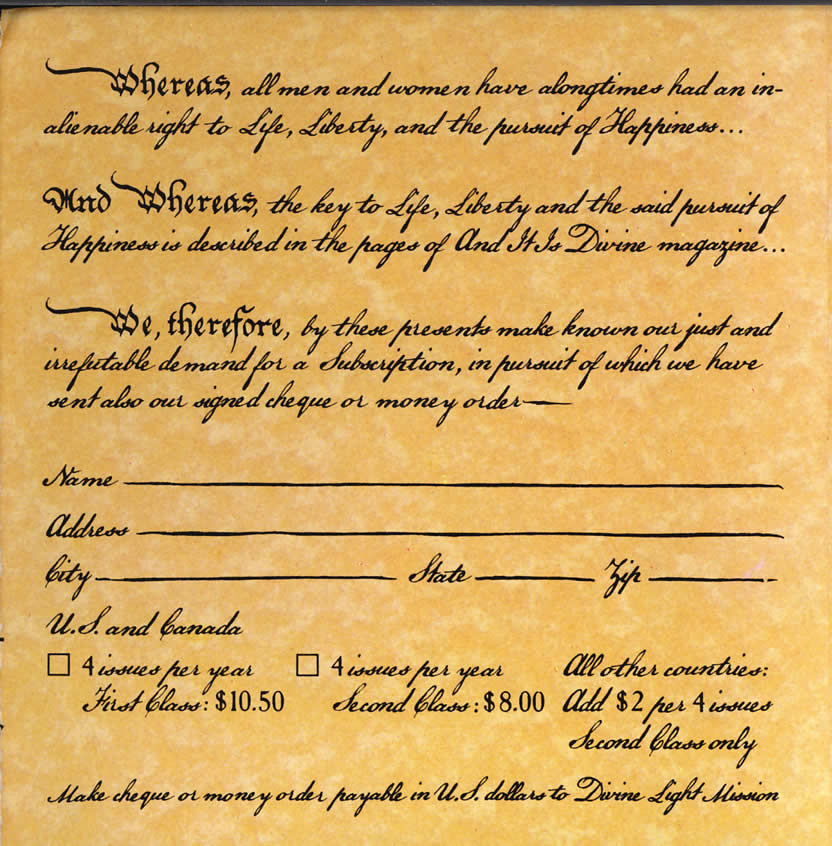 Whereas, all men and women have alongtimes had an in-
alienable right to Life, Liberty, and the pursuit of Happiness...
And Whereas, the key to Life, Liberty and the said pursuit of
Happiness is described in the pages of And It Is Divine magazine...
We, therefore, by these presents make known our just and
irrefutable demand for a Subscription, in pursuit of which we have
sent also our signed cheque or money order—
Name
Address
City State Zip
U.S. and Canada
4 issues per year 4 issues per year All other countries:
First Class: $10.50 Second Class: $8.00 Add $2 per 4 issues
Second Class only
Make cheque or money order payable in U.S. dollars to Divine Light Mission